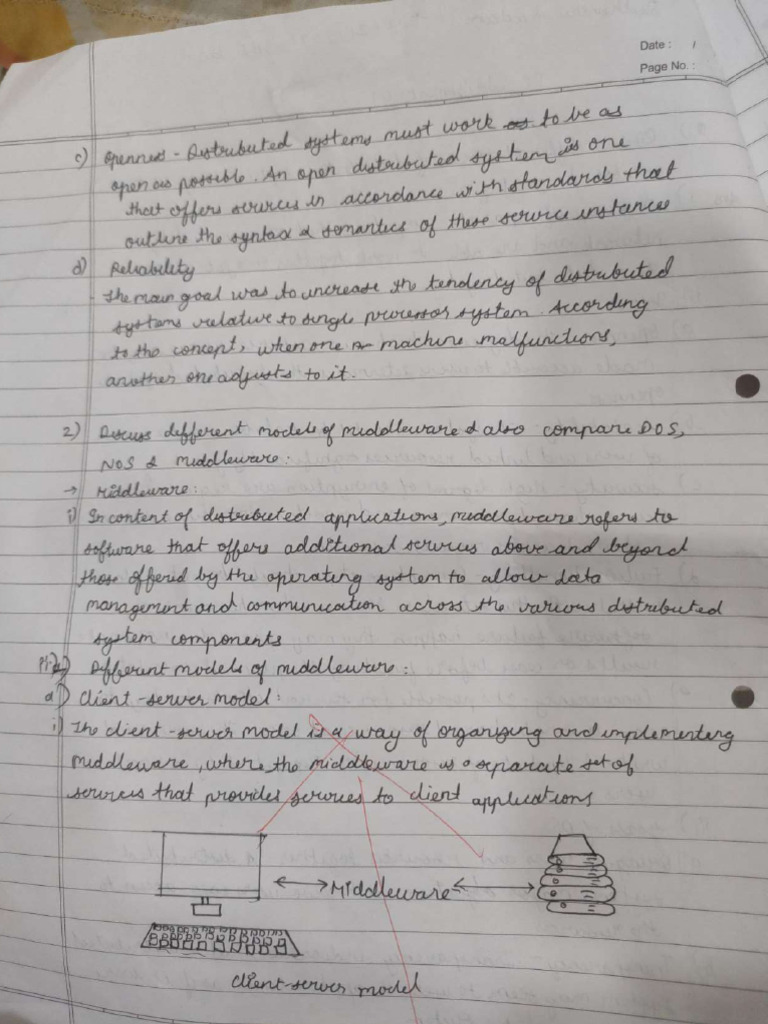 Date : /
Page No. :
c) Openness - Distributed systems must work as to be as
open as possible. An open distributed system is one
that offers services in accordance with standards that
outline the syntax & semantics of these service instances
d) Reliability
- The main goal was to increase the tendency of distributed
systems relative to single processor system. According
to the concept, when one machine malfunctions,
another one adjusts to it.
2) Discuss different models of middleware & also compare DOS,
NOS & middleware:
→ Middleware:
i) In content of distributed applications, middleware refers to
software that offers additional services above and beyond
those offered by the operating system to allow data
management and communication across the various distributed
system components
Different models of middleware:
a) Client-server model:
i) The client-server model is a way of organizing and implementing
middleware, where the middleware is a separate set of
services that provides services to client applications
Middleware
Client-server model